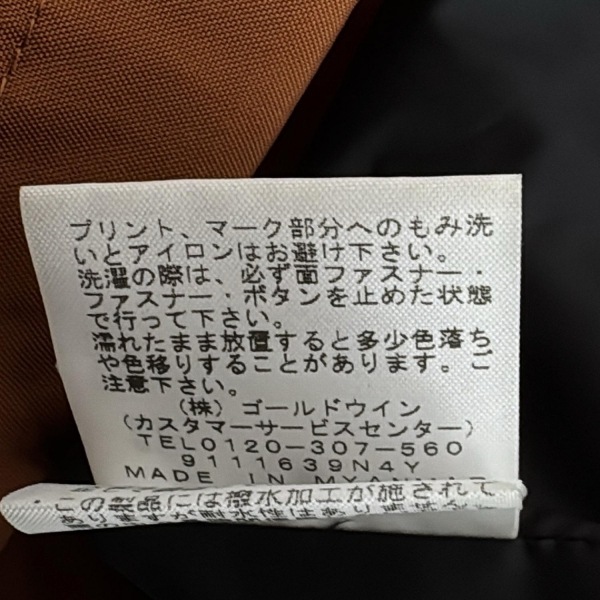 プリント、マーク部分へのもみ洗
いとアイロンはお避け下さい。
洗濯の際は、必ず面ファスナー・
ファスナー・ボタンを止めた状態
で行って下さい。
濡れたまま放置すると多少色落ち
や色移りすることがあります。ご
注意下さい。
(株)ゴールドウイン
(カスタマーサービスセンター)
TEL0120-307-560
9111639N4Y
MADE IN
には撥水加工が施されて